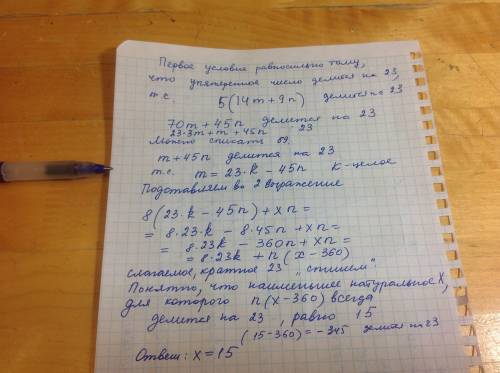 Первое условие равносильно тому,
что упятеренное число делится на 23,
т.е. 5(14m+9n) делится на 23
70m+45n делится на 23
23·3m+m+45n 23
Можно списать 69.
m+45n делится на 23
т.е. m=23·k-45n k-целое
Подставляем во 2 выражение
8(23·k-45n)+xn=
=8·23·k-8·45n+xn=
=8·23k-360n+xn=
=8·23k+n(x-360)
слагаемое, кратное 23 „спишем"
Понятно, что наименьшее натуральное x,
для которого n(x-360) всегда
делится на 23, равно 15
(15-360)=-345 делится на 23
Ответ: x=15